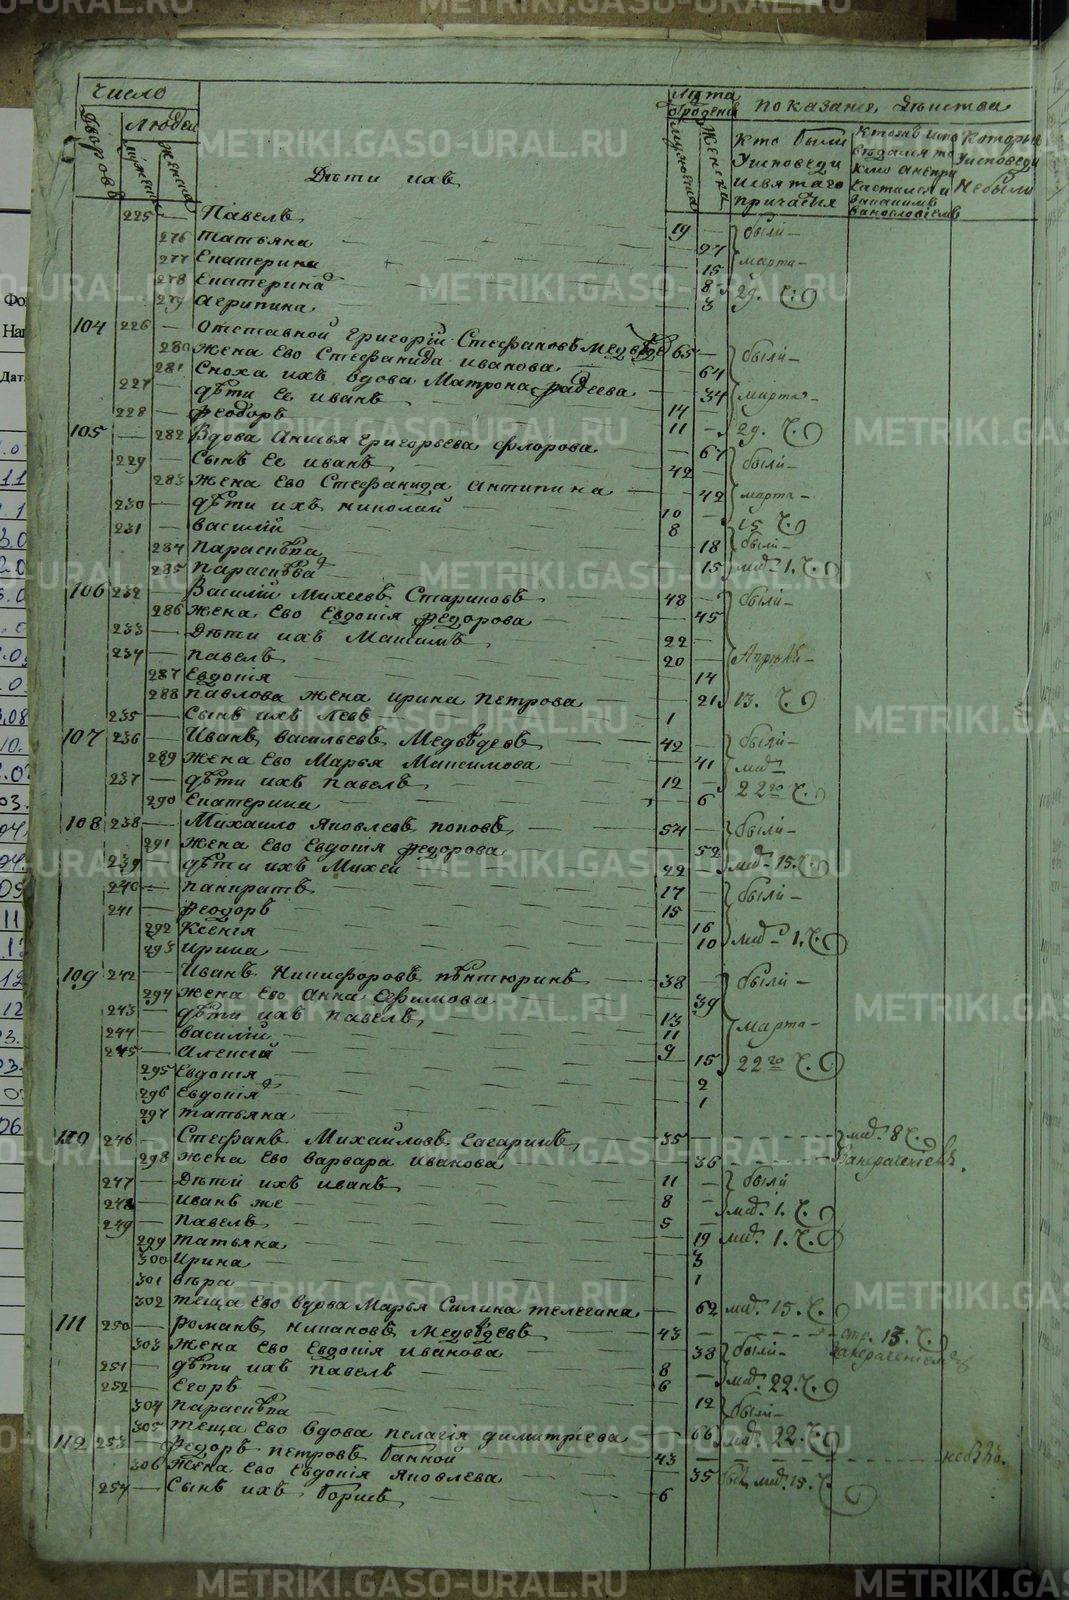 METRIKI.GASO-URAL.RU
число
Дворовъ
Людей
мужеска
женска
Дѣти ихъ
Лѣта
отрожденія
мужеска
женска
показаніе, Дѣйства
кто были
Уисповеди
исвятаго
причастія
Которые
Уисповеди
Небыли
225 — Павелъ 19 — были
276 Татьяна 27
277 Екатерина 15 марта
278 Екатерина 8
279 Агрипина 3 29. Ч.
104 226 — Отставной Григорій Стефановъ Медвѣде 65 — были
280 Жена Ево Стефанида Иванова 64
281 Сноха ихъ вдова Матрона Фадеева 34 марта
227 — дѣти Ее Иванъ 14
228 — Феодоръ 11 29. Ч.
105 — 282 Вдова Анисья Григорьева Флорова 67
229 — Сынъ Ее Иванъ 42 были
283 Жена Ево Стефанида Антипина 42 марта
230 — дѣти ихъ Николай 10
231 — Василій 8 15 Ч.
284 Парасковья 18 были
285 Парасковья 15 мар. 1. Ч.
106 232 — Василій Михеевъ Стариковъ 48 были
286 Жена Ево Евдокія Федорова 45
233 — Дѣти ихъ Максимъ 22
234 — Павелъ 20 Апрѣля
287 Евдокія 14
288 Павлова жена Ирина Петрова 21 13. Ч.
235 — Сынъ ихъ Левъ 1
107 236 — Иванъ Васильевъ Медвѣдевъ 42 были
289 Жена Ево Марья Максимова 41 мар.
237 — дѣти ихъ Павелъ 12
290 Екатерина 6 22го Ч.
108 238 — Михаило Яковлевъ Поповъ 54 были
291 Жена Ево Евдокія Федорова 52
239 — дѣти ихъ Михей 22 мар. 15. Ч.
240 — Панкратъ 17 были
241 — Феодоръ 15
292 Ксенія 16
293 Ирина 10 мар. 1. Ч.
109 242 — Иванъ Никифоровъ Пѣнтюринъ 38 были
294 Жена Ево Анна Ефимова 39
243 — дѣти ихъ Павелъ 13 марта
244 — Василій 11
245 — Алексій 9
295 Евдокія 15 22го Ч.
296 Евдокія 2
297 Татьяна 1
110 246 — Стефанъ Михайловъ Гагаринъ 35 мар. 8 Ч.
298 Жена Ево Варвара Иванова 36
247 — Дѣти ихъ Иванъ 11 были
248 — Иванъ же 8 мар. 1. Ч.
249 — Павелъ 5
299 Татьяна 19 мар. 1. Ч.
300 Ирина 3
301 Вѣра 1
302 теща Ево вдова Марья Силина Телегина 62 мар. 15. Ч.
111 250 — Романъ Никановъ Медвѣдевъ 43
303 Жена Ево Евдокія Иванова 38 были
251 — дѣти ихъ Павелъ 8
252 — Егоръ 6 мар. 22. Ч.
304 Парасковья 12 были
305 теща Ево Вдова Пелагія Димитріева 66 мар. 22. Ч.
112 253 — Федоръ Петровъ Банной 43
306 Жена Ево Евдокія Яковлева 35 был. мар. 15. Ч.
254 — Сынъ ихъ Борисъ 6